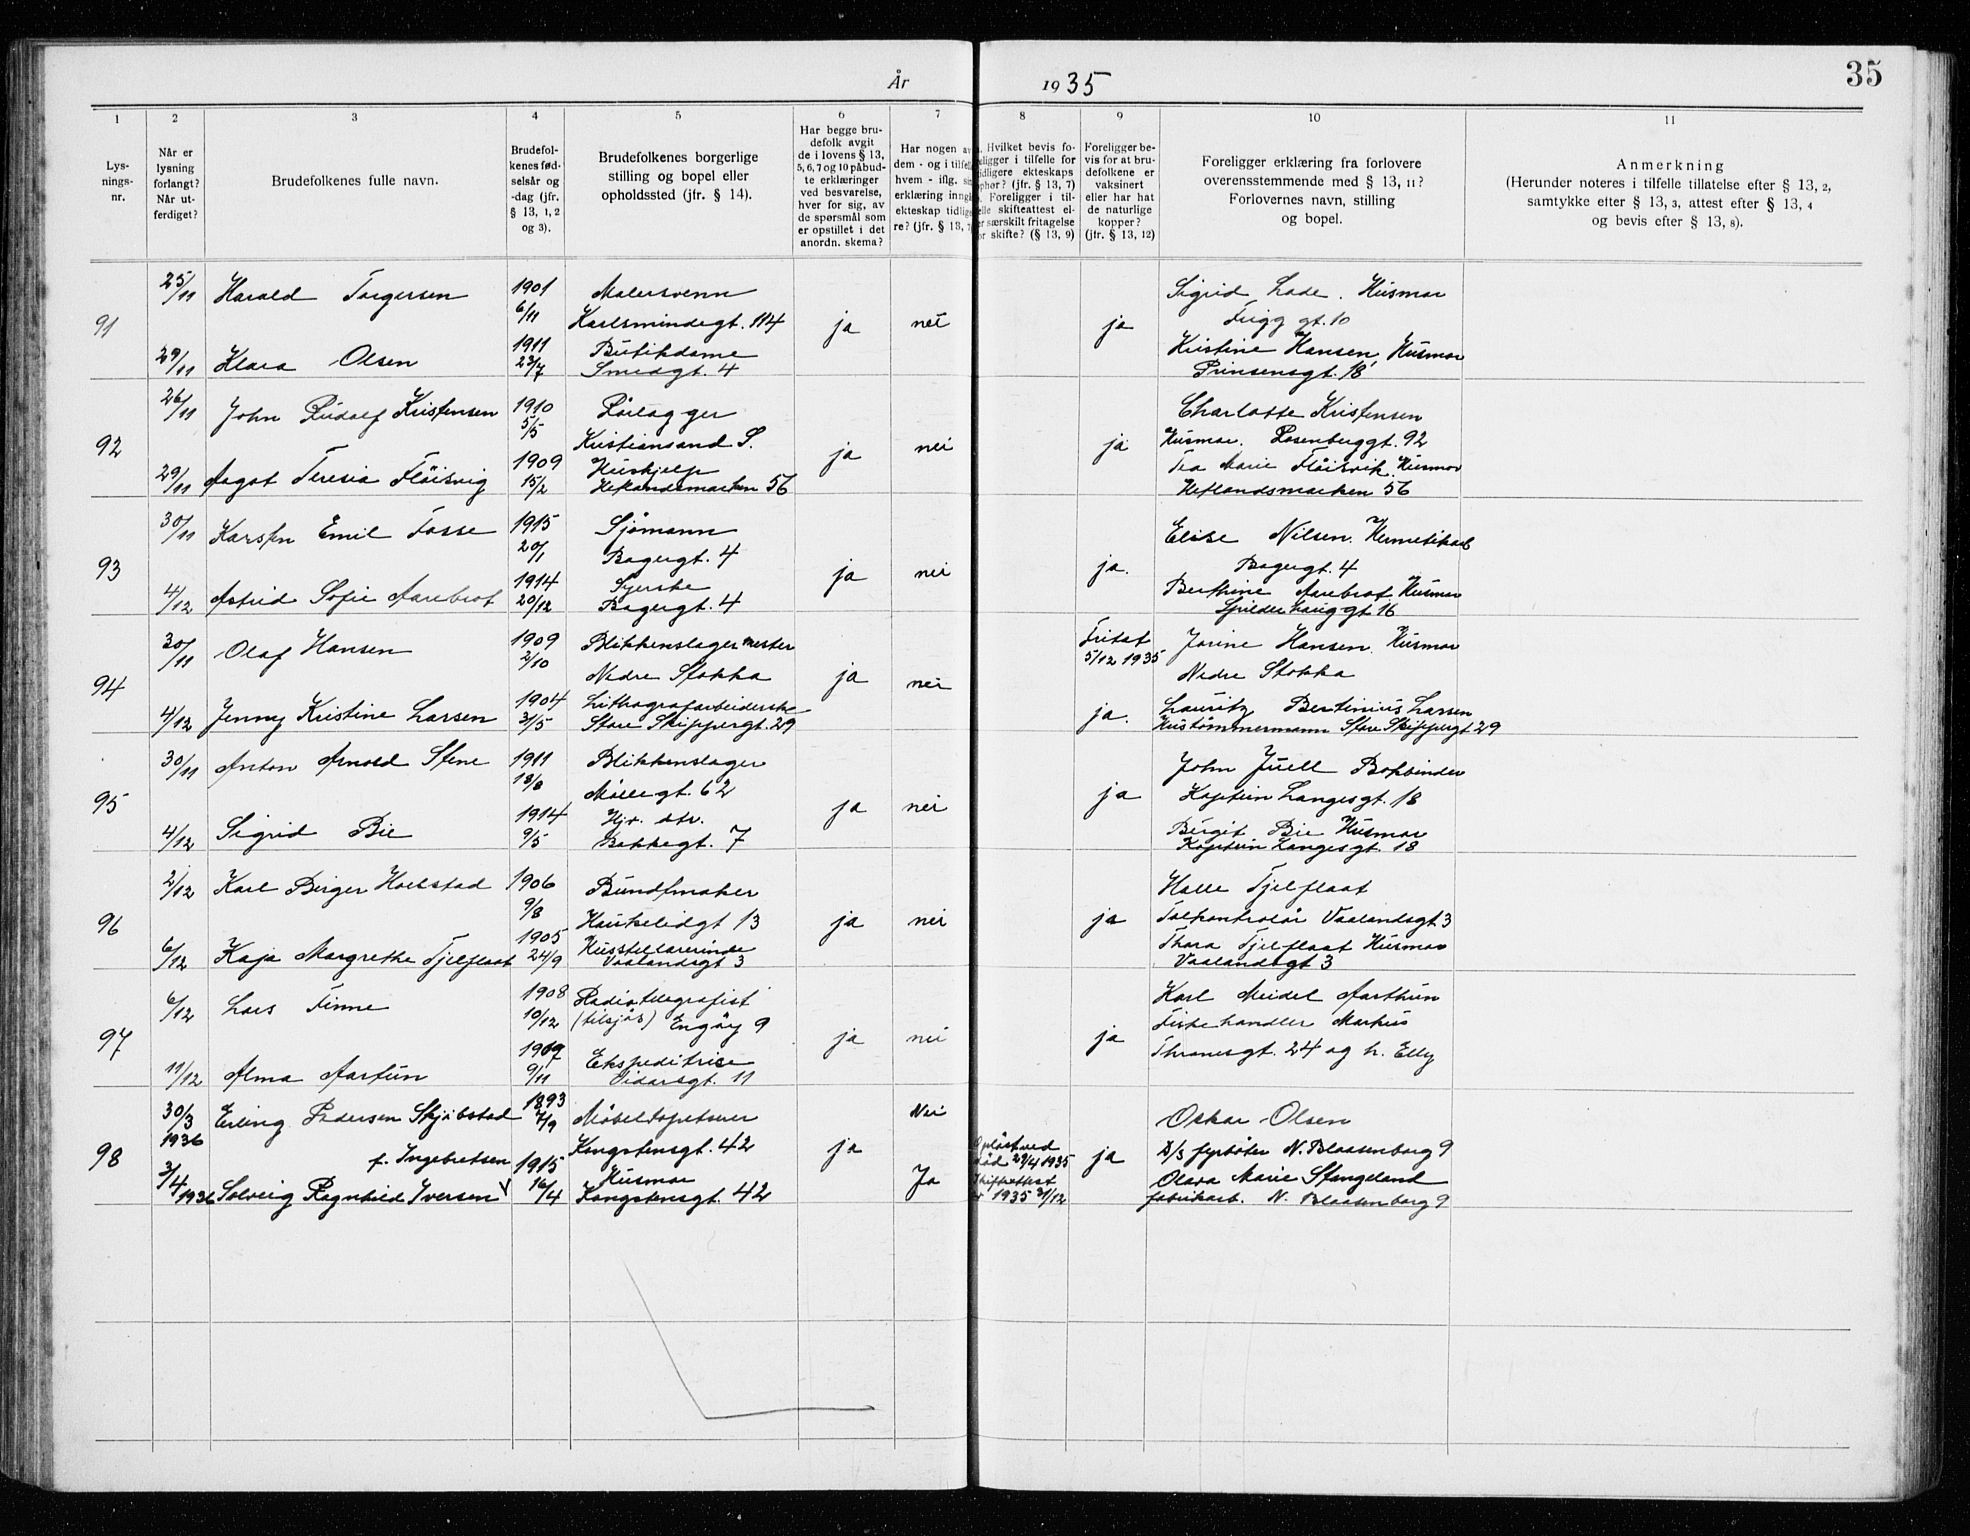 År 1935
35
1 2 3 4 5 6 7 8 9 10 11
Lys-
nings-
nr.
Når er
lysning
forlangt?
Når ut-
ferdiget?
Brudefolkenes fulle navn.
Brudefol-
kenes fød-
selsår og
-dag (jfr.
§ 13, 1, 2
og 3).
Brudefolkenes borgerlige
stilling og bopel eller
opholdssted (jfr. § 14).
Har begge bru-
defolk avgit
de i lovens § 13,
5, 6, 7 og 10 påbud-
te erklæringer
ved besvarelse,
hver for sig, av
de spørsmål som
er opstillet i det
anordn. skema?
Har nogen av
dem - og i tilfelle
hvem - iflg.
erklæring inngå
ekteskap tidlige
re? (jfr. § 13, 7
Hvilket bevis fo-
religger i tilfelle for
tidligere ekteskaps
ophør? (jfr. § 13, 7)
Foreligger i til-
felle skifteattest el-
er særskilt fritagelse
or skifte? (§ 13, 9)
Foreligger be-
vis for at bru-
defolkene er
vaksinert
eller har hat
de naturlige
kopper?
(jfr. § 13, 12)
Foreligger erklæring fra forlovere
overensstemmende med § 13, 11?
Forlovernes navn, stilling
og bopel.
Anmerkning
(Herunder noteres i tilfelle tillatelse efter § 13, 2,
samtykke efter § 13, 3, attest efter § 13, 4
og bevis efter § 13, 8).
25/11 Harald Torgersen 1901 Malersvenn Sigrid Lade. Husmor
91 6/11 Karlsmindegt. 114 ja nei ja Frigg gt. 10
29/11 Klara Olsen 1911 Butikdame Kristine Hansen, Husmor
23/7 Smedgt. 4 Prinsensgt. 18
26/11 John Rudolf Kristensen 1910 Rørlegger Charlotte Kristensen
92 5/5 Kristiansand S. ja nei ja Husmor. Rosenberggt. 92
29/11 Aagot Teresia Fløisvig 1909 Hushjelp Tea Marie Fløisvik. Husmor
15/2 Hetlandsmarken 56 Hetlandsmarken 56
30/11 Karsten Emil Fosse 1915 Sjømann Elise Nilsen. Hermetikarb
93 20/1 Bagergt. 4 ja nei ja. Bagergt. 4
4/12 Astrid Sofie Aarebrot 1914 Syerske Berthine Aarebrot Husmor
20/12 Bagergt. 4 Spilderhauggt 16
30/11 Olaf Hansen 1909 Blikkenslagermester Fritat Jorine Hansen. Husmor
2/10 Nedre Stokka 5/12 1935 Nedre Stokka
94 ja nei
4/12 Jenny Kristine Larsen 1904 Lithografarbeiderske ja. Lauritz Bertinius Larsen
31/5 Store Skippergt. 29 Hustømmermann Store Skippergt 29
30/11 Anton Arnold Stene 1911 Blikkenslager John Juell Bokbinder
18/8 Møllegt. 62 Kaptein Langesgt. 18
95 ja nei ja
4/12 Sigrid Bie 1914 Hjv. str. Bergit Bie Husmor
9/5 Bakkegt. 7 Kaptein Langesgt. 18
2/12 Karl Birger Hoelstad 1906 Buntmaker Halle Tjelflaat
96 9/8 Haukelidgt 13 ja nei ja Tolkontrolør Vaalandsgt 3
6/12 Kaja Margrethe Tjelflaat 1905 Husstellærerinde Thora Tjelflaat Husmor
24/9 Vaalandsgt 3 Vaalandsgt 3
6/12 Lars Finne 1908 Radiotelegrafist Karl Meidel Aarthun
10/12 (tilsjøs) Engøy 9 Fiskehandler Markus
97 ja nei ja Thranesgt. 24 og h. Elly
11/12 Alma Aartun 1909 Ekspeditrice
9/11 Vidarsgt. 11
30/3 1936 Erling Pedersen Skjøbstad 1893 Møbeltapetserer Nei Oskar Olsen
98 7/9 Kongstensgt. 42 ja Opløst ved død 29/4 1935 ja D/S fyrbøter N. Blaasenborg 9
f. Ingebretsen
3/4 1936 Solveig Ragnhild Iversen 1915 Husmor Ja Skifteattest Olava Marie Stangeland
16/4 Kongstensgt. 42 1935 31/12 fabrikarb. N. Blaasenborg 9